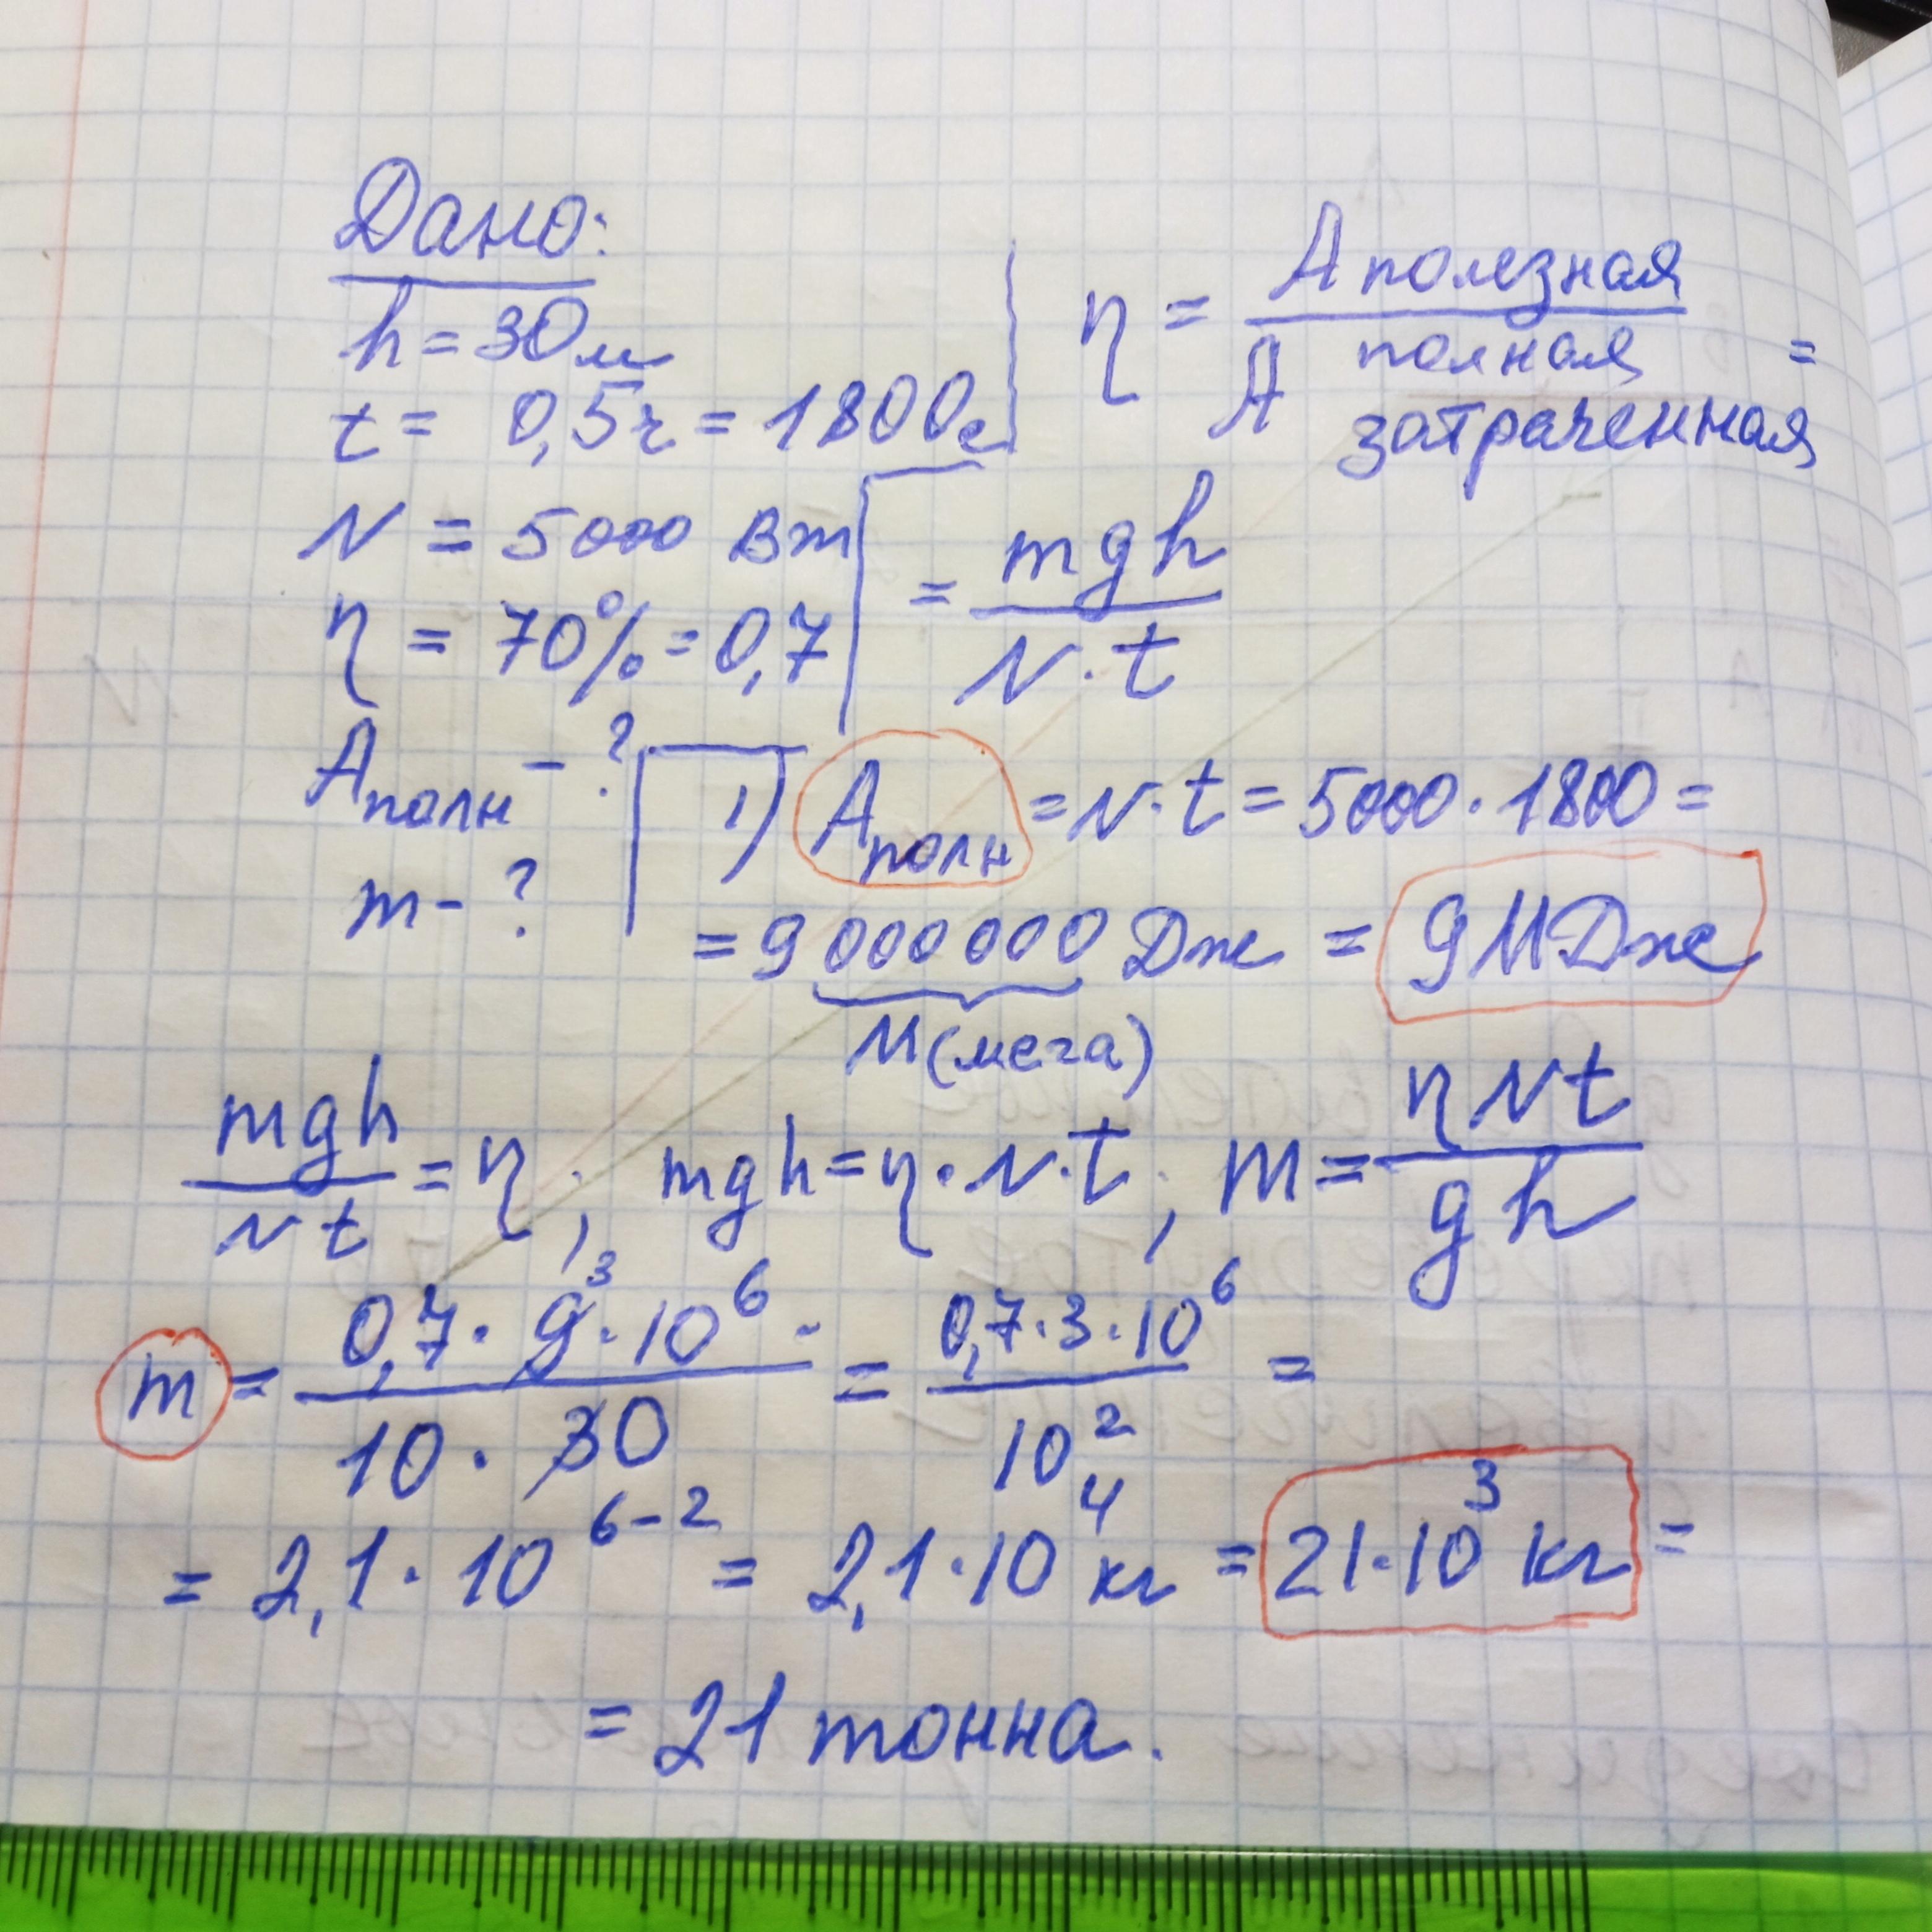 Дано:
h = 30м
t = 0,5ч = 1800с
N = 5000 Вт
η = 70% = 0,7
Aполн - ?
m - ?
η = A полезная / A полная затраченная =
= mgh / N·t
1) Aполн = N·t = 5000·1800 =
= 9 000 000 Дж = 9 МДж
М(мега)
mgh / Nt = η; mgh = η·N·t; m = ηNt / gh
m = 0,7·9³·10⁶· / 10·30 = 0,7·3·10⁶ / 10² =
= 2,1·10⁶⁻² = 2,1·10⁴ кг = 21·10³ кг =
= 21 тонна.